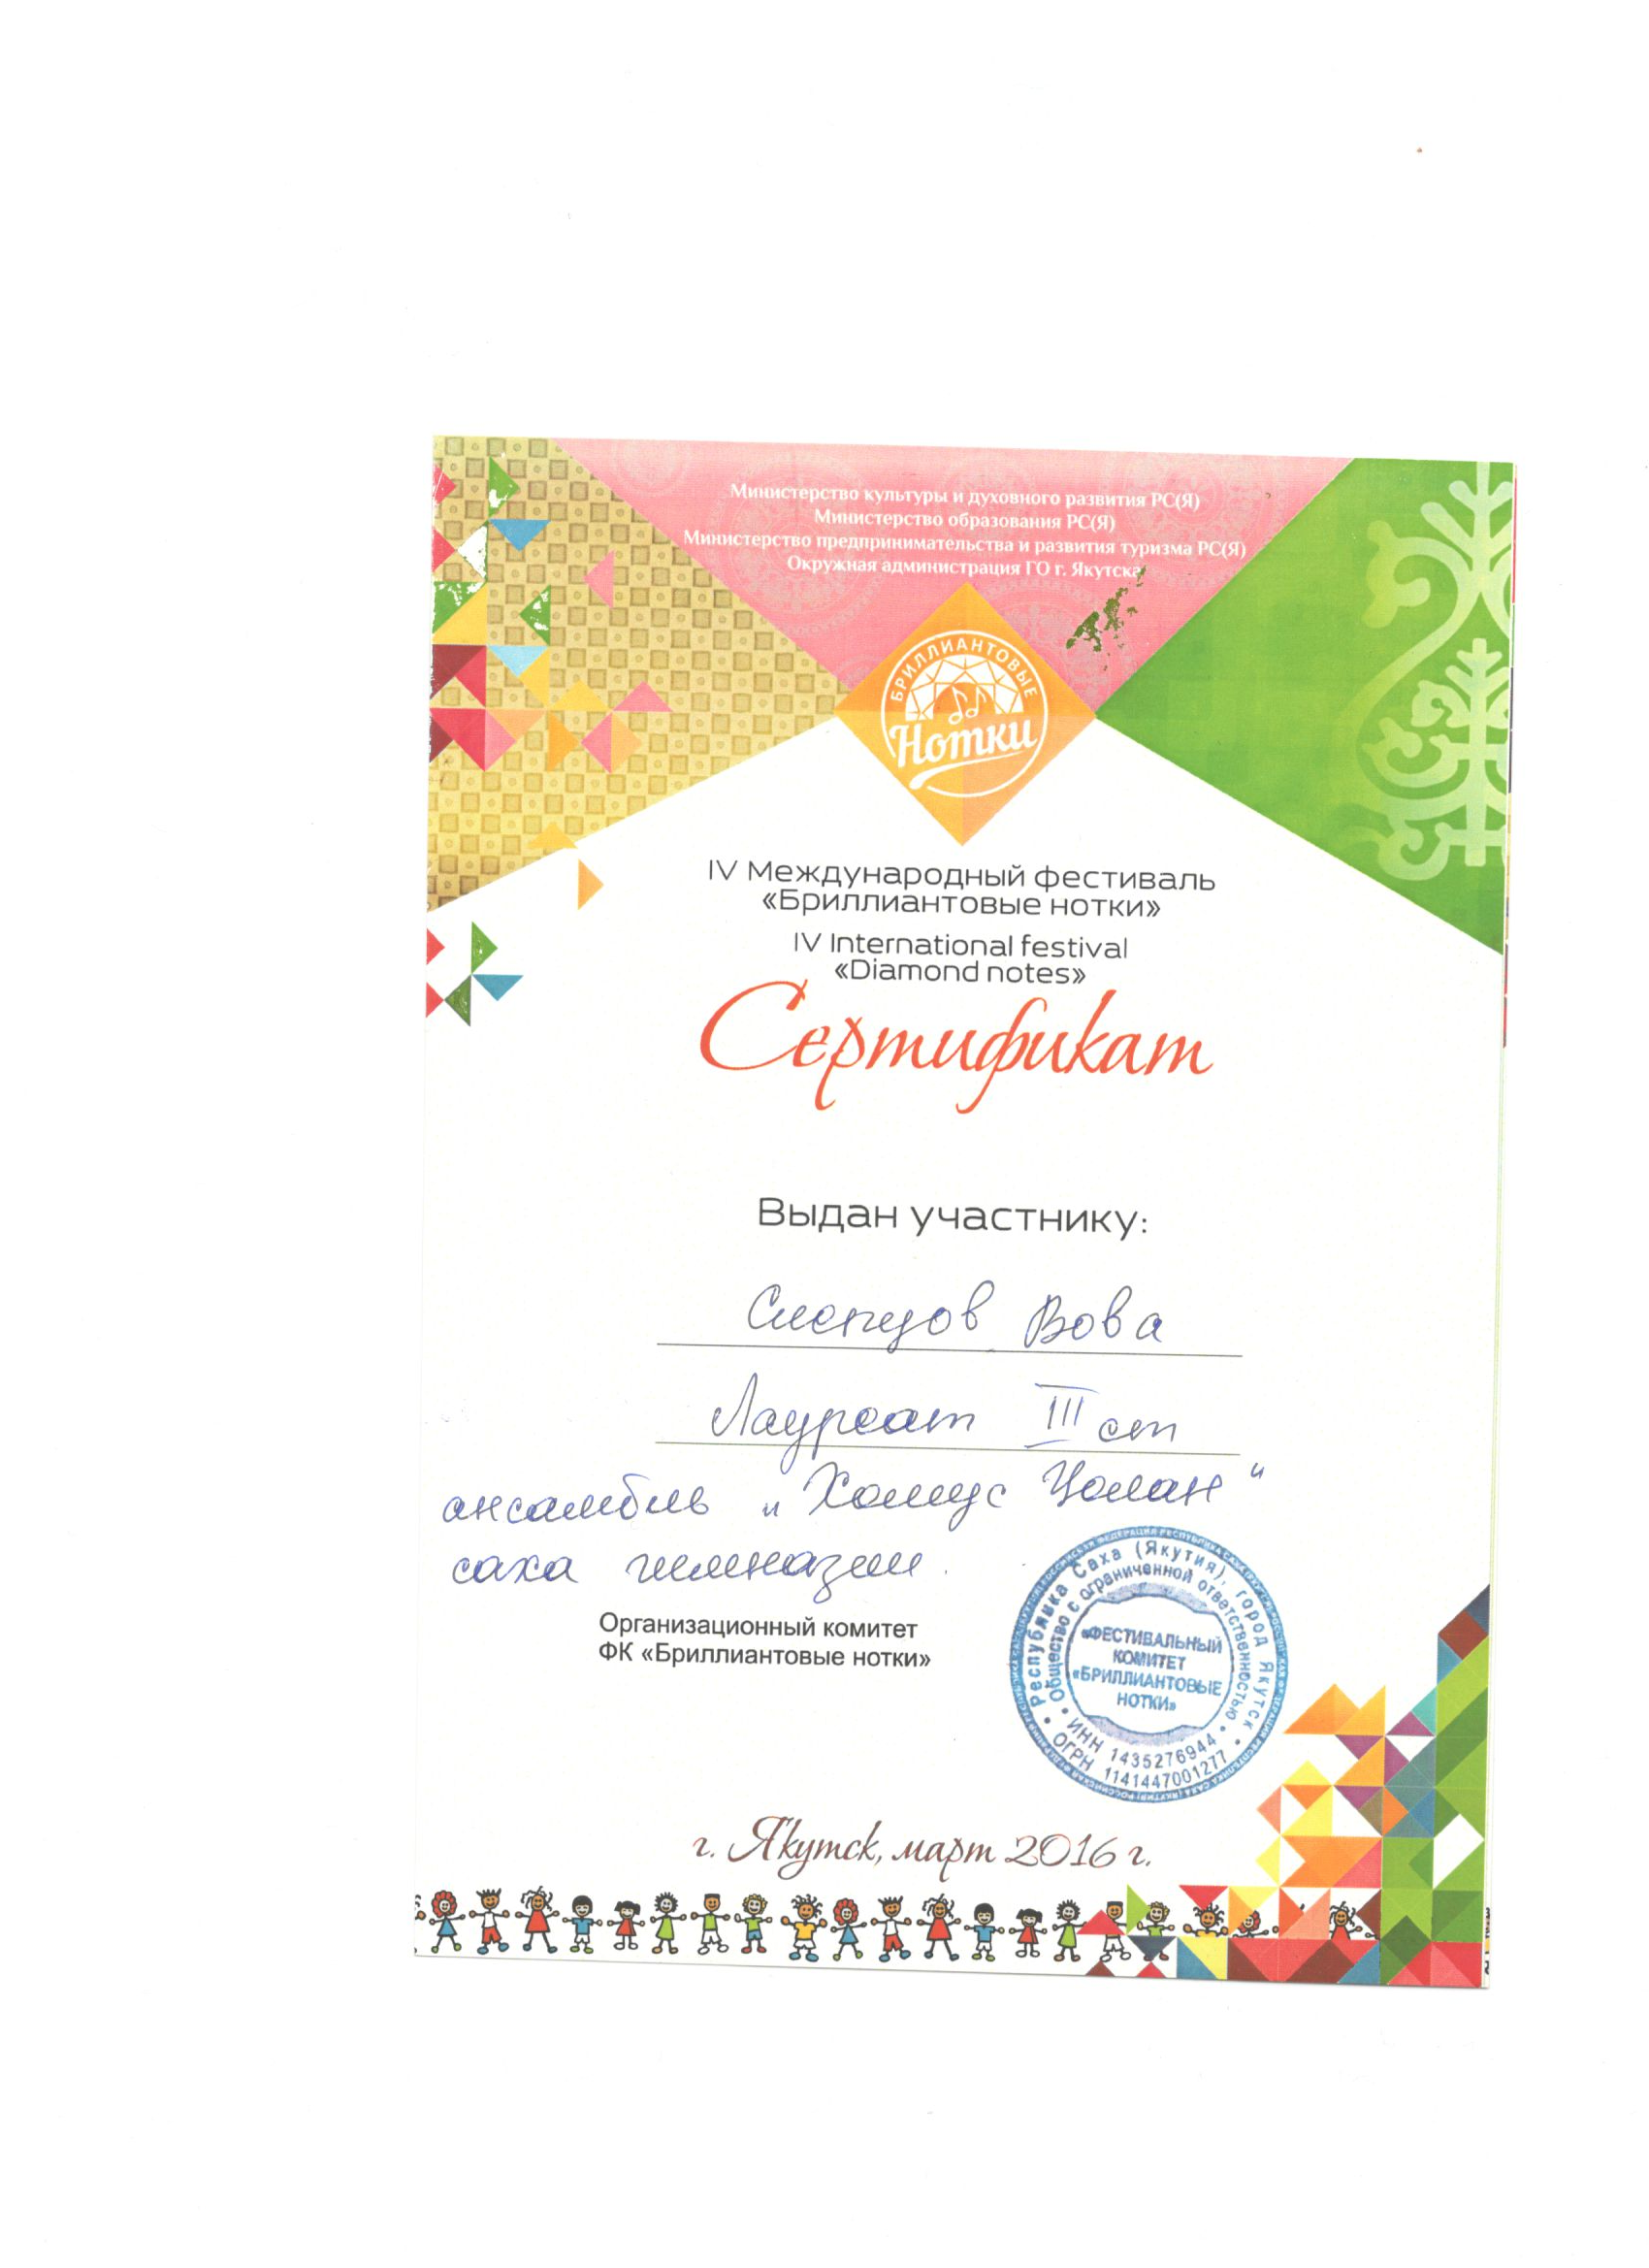 Министерство культуры и духовного развития РС(Я)
Министерство образования РС(Я)
Министерство предпринимательства и развития туризма РС(Я)
Окружная администрация ГО г. Якутска
БРИЛЛИАНТОВЫЕ
Нотки
IV Международный фестиваль
«Бриллиантовые нотки»
IV International festival
«Diamond notes»
Сертификат
Выдан участнику:
Слепцов Вова
Лауреат III ст
ансамбль "Хомус
саха гимназии.
Организационный комитет
ФК «Бриллиантовые нотки»
Республика Саха (Якутия), город Якутск
Общество с ограниченной ответственностью
«ФЕСТИВАЛЬНЫЙ
КОМИТЕТ
«БРИЛЛИАНТОВЫЕ
НОТКИ»
ИНН 1435276944
ОГРН 1141447001277
г. Якутск, март 2016 г.